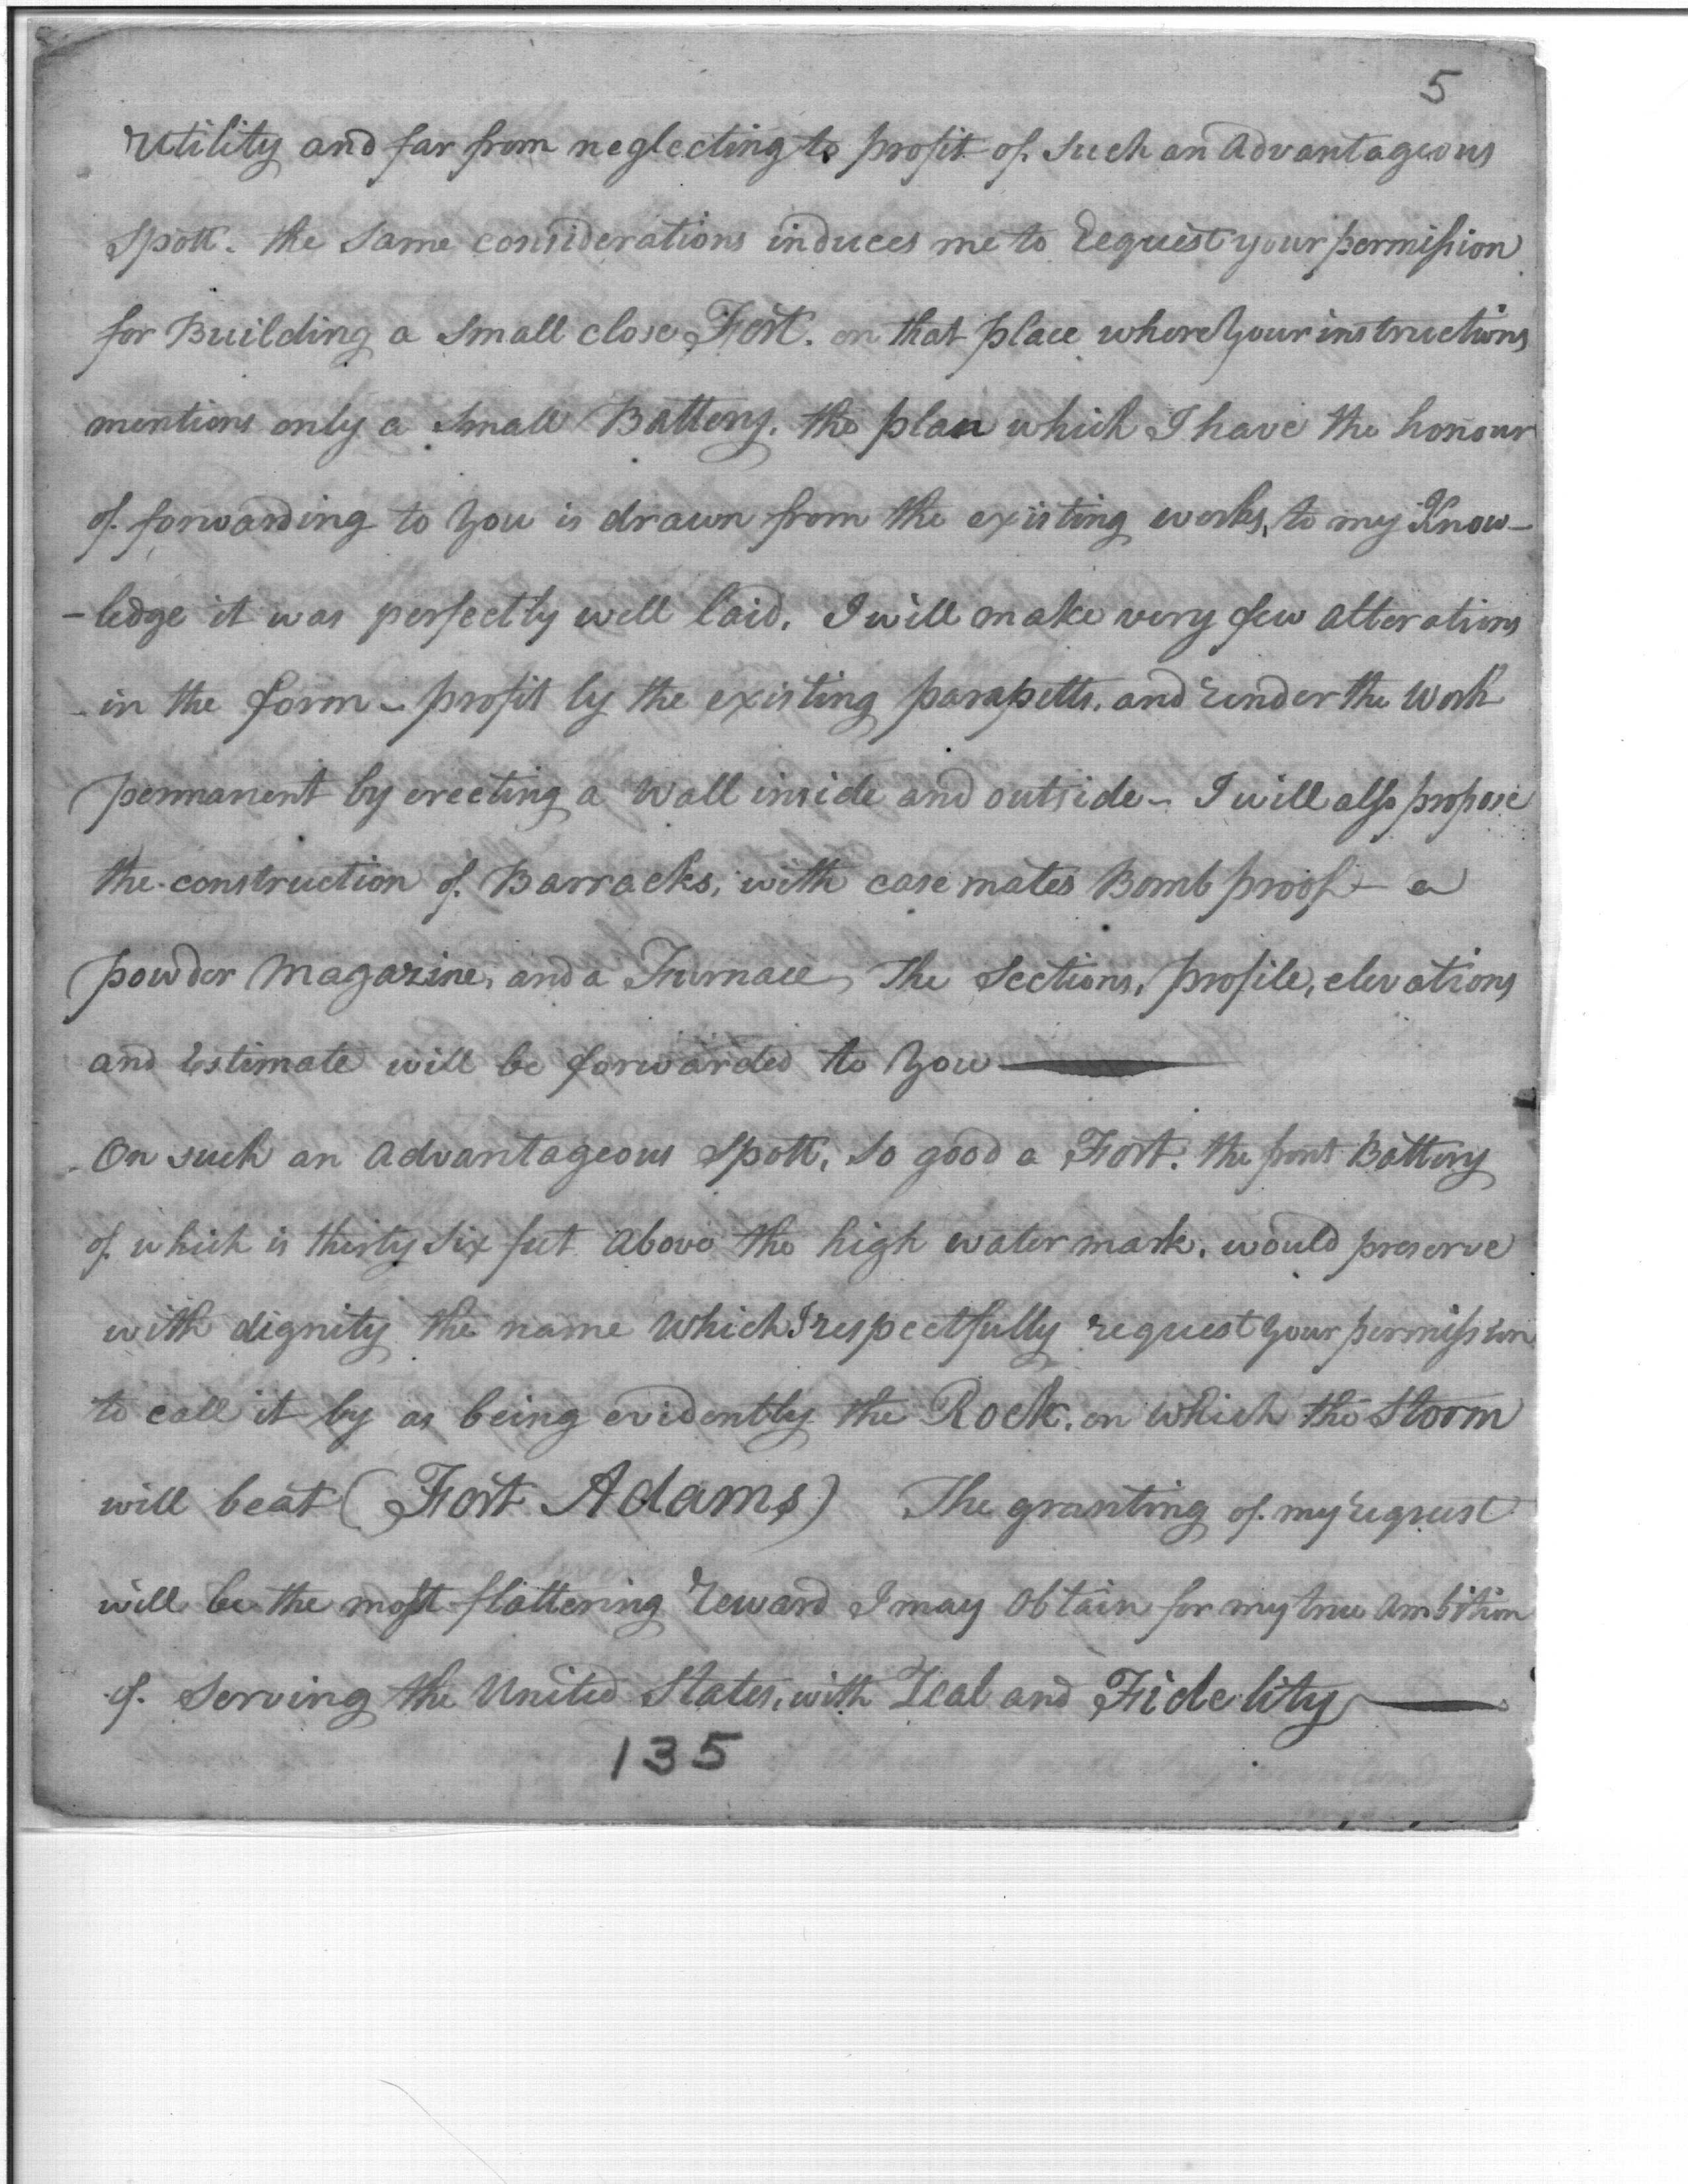 5
Utility and far from neglecting to profit of such an Advantageous
Spott. the same considerations induces me to Request your permission
for Building a small close Fort. on that place where your instructions
mentions only a small Battery. the plan which I have the honour
of forwarding to You is drawn from the existing works, to my Know-
-ledge it was perfectly well laid. I will make very few alterations
in the form - profit by the existing parapetts. and render the Work
permanent by erecting a Wall inside and outside - I will also propose
the construction of Barracks, with casemates Bomb proof - a
powder Magazine, and a Furnace, The Sections, profile, elevations
and Estimate will be forwarded to You
On such an Advantageous Spott, so good a Fort. the front Battery
of which is thirty six feet Above the high water mark. would preserve
with dignity the name which I respectfully request your permission
to call it by as being evidently the Rock. on which the Storm
will beat (Fort Adams) The granting of my request
will be the most flattering Reward I may Obtain for my true Ambition
of Serving the United States, with Zeal and Fidelity
135